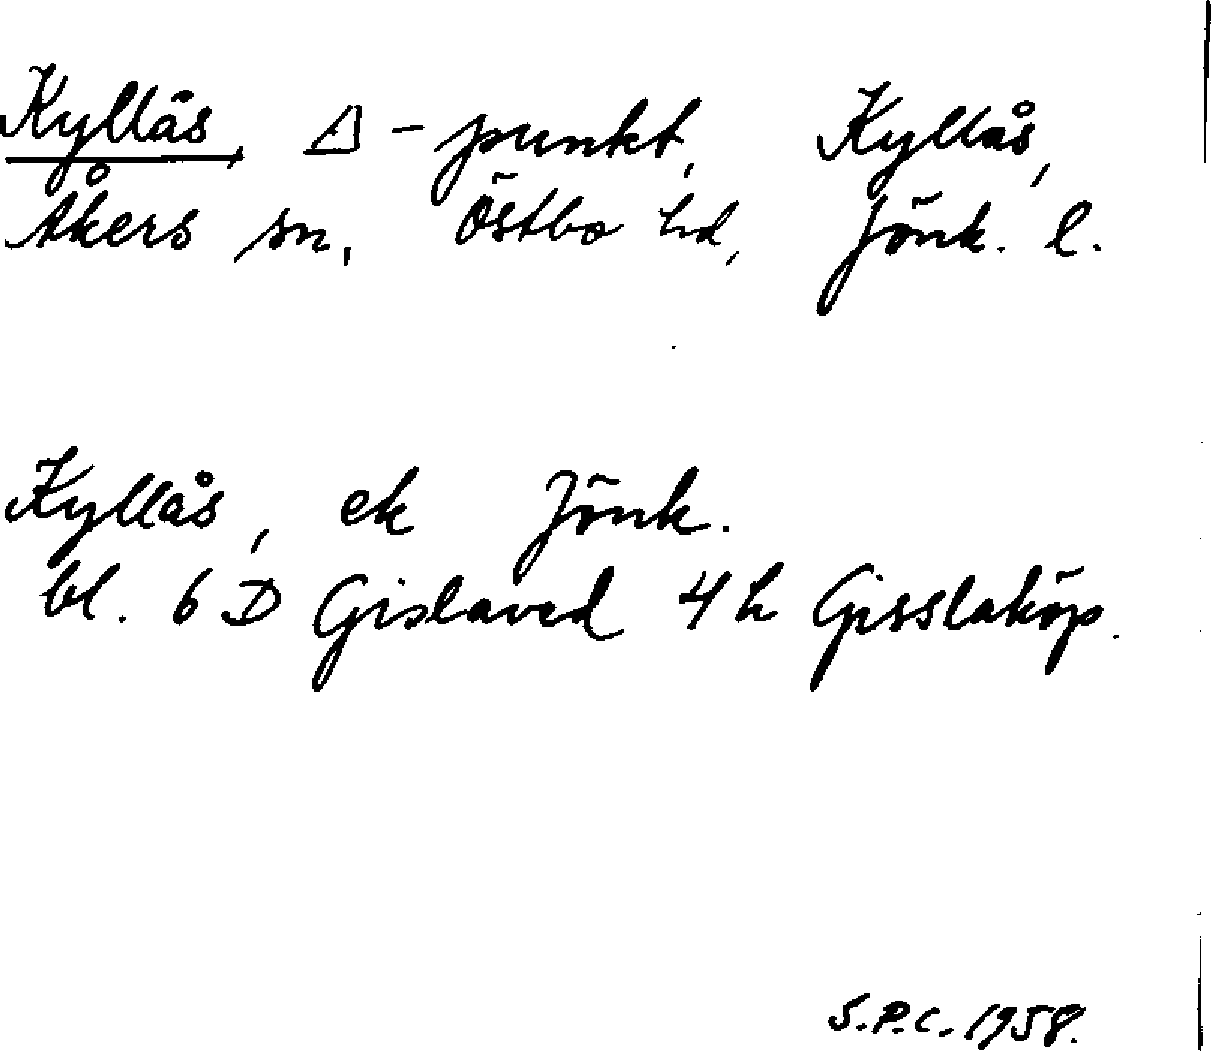 Kyllås, Δ-punkt, Kyllås,
Åkers sn, Östbo hd, Jönk. l.
Kyllås, ek Jönk.
bl. 6 D Gislaved 4 h Gisslaköp.
S.P.C. 1958.